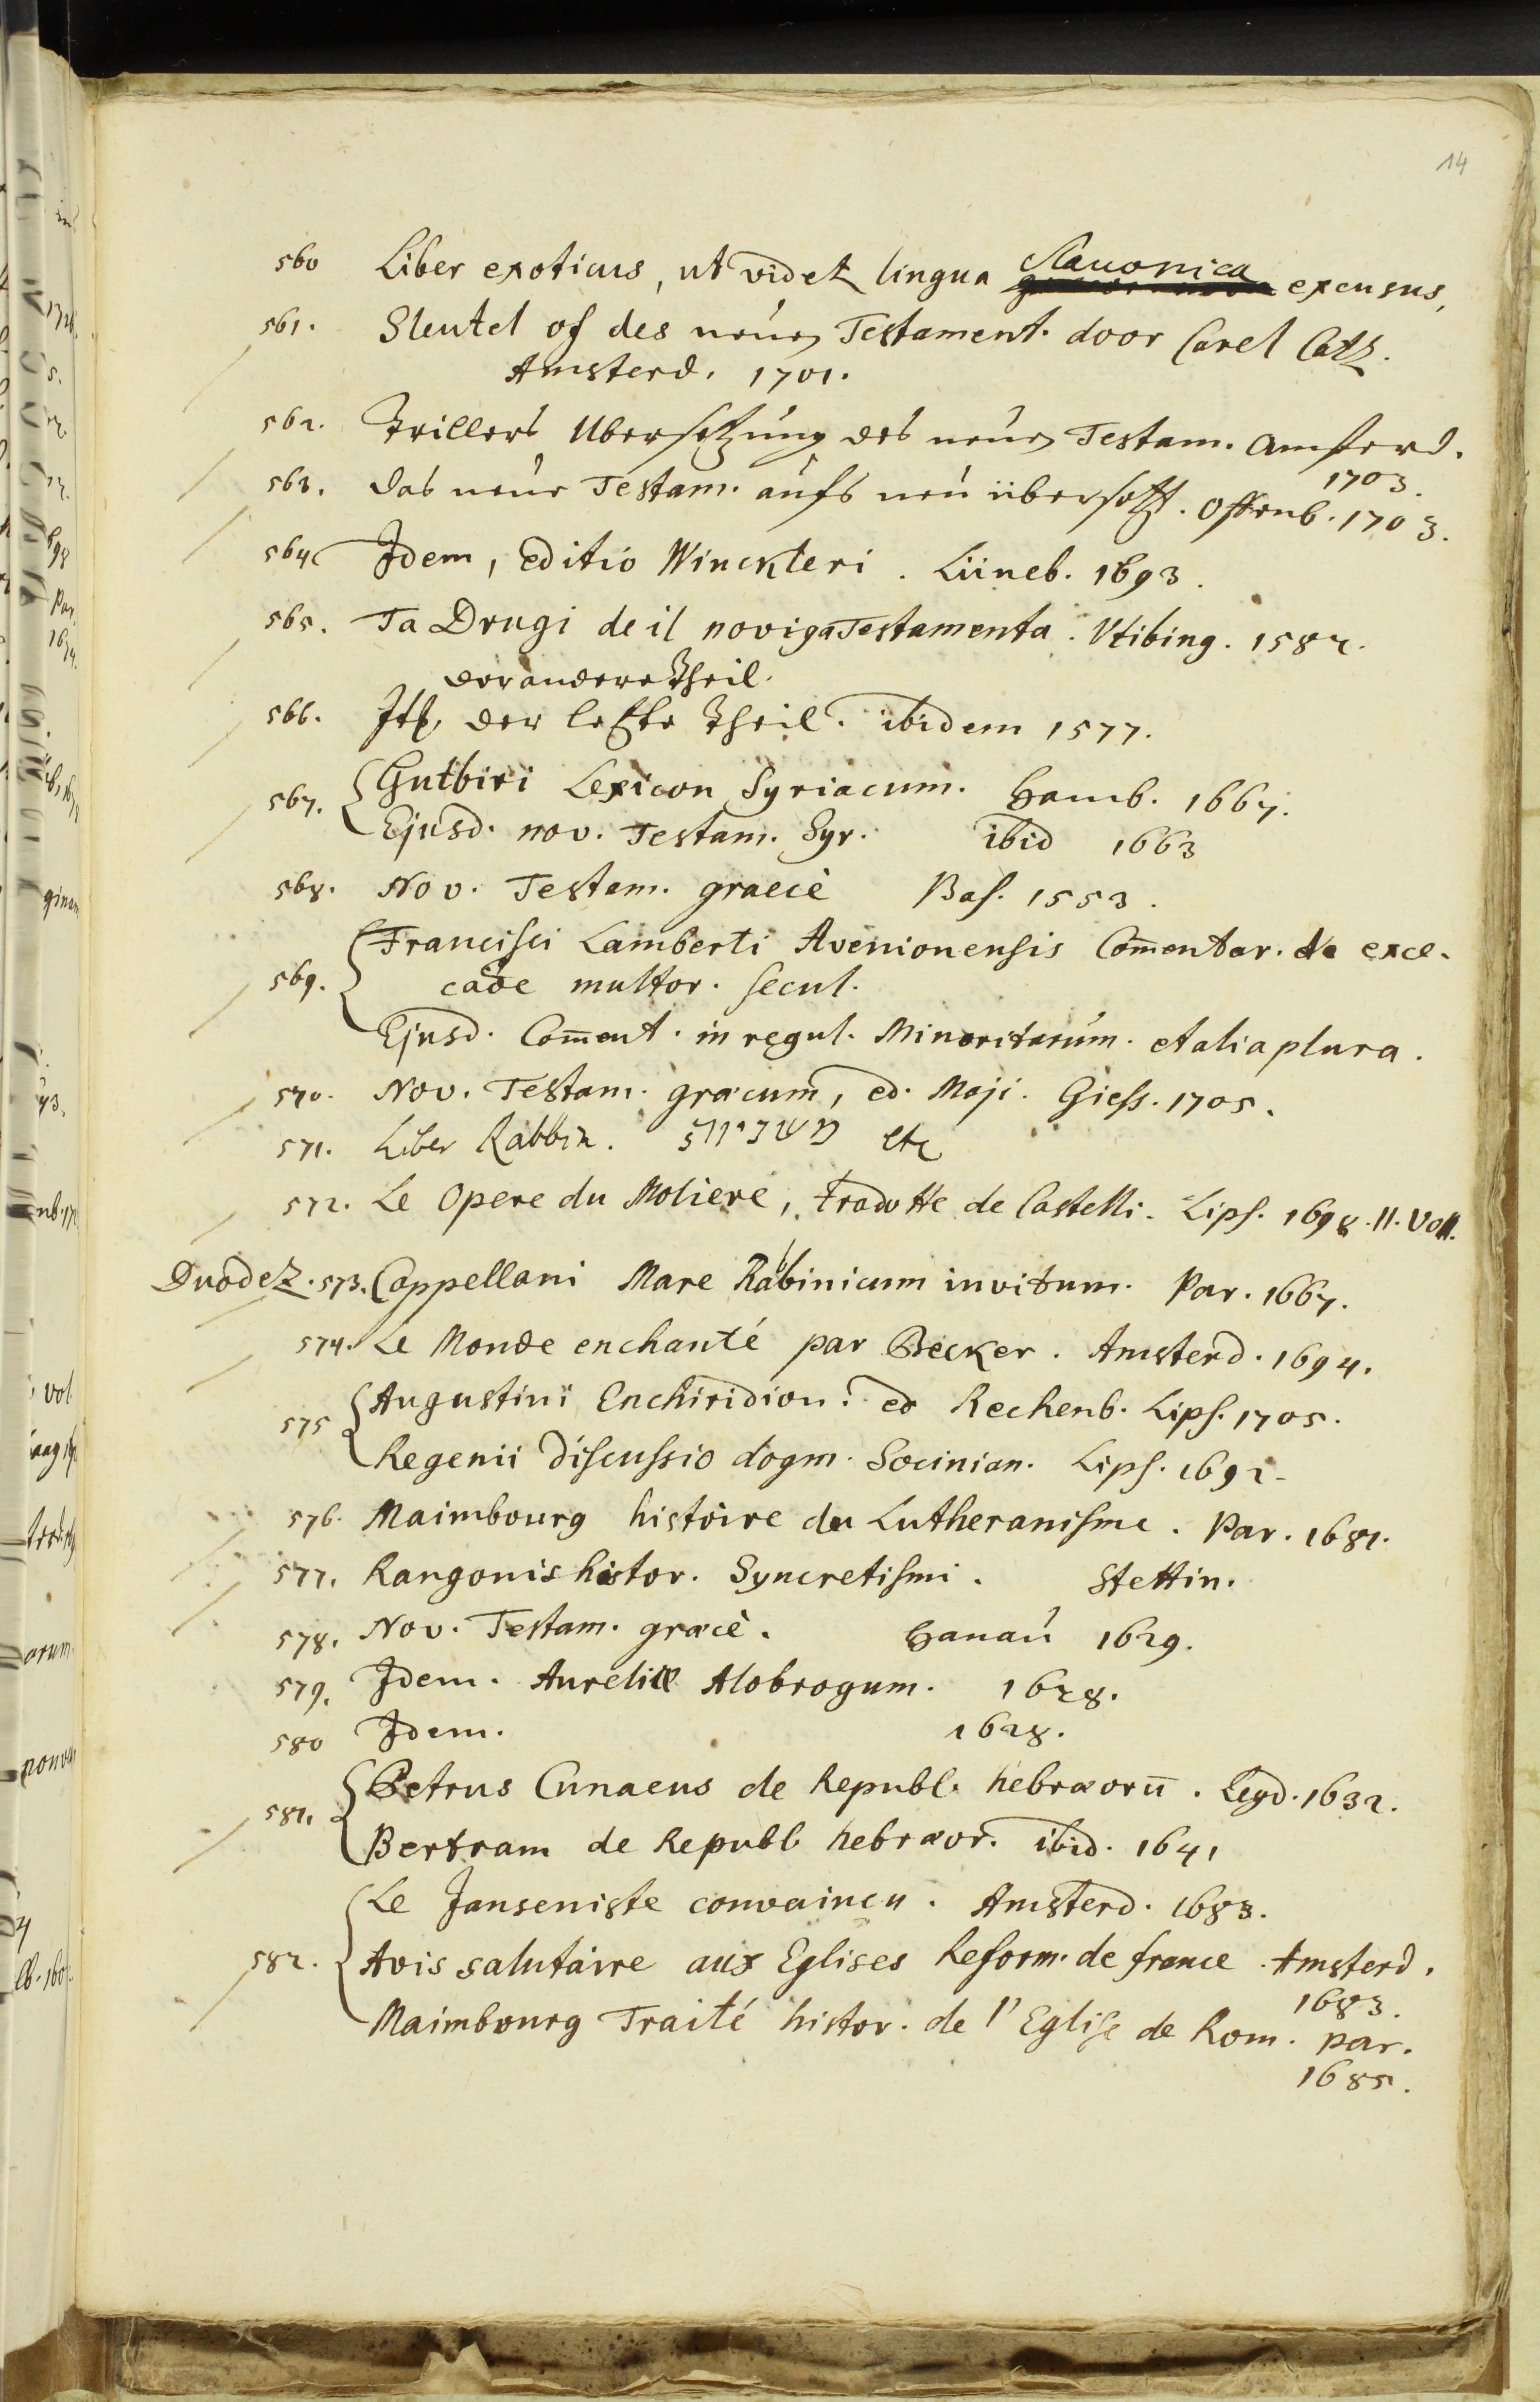 14
560 Liber exoticus, ut videt lingua Slauonica excusus,
561. Sleutel of des neuen Testament. door Carel Catz.
Amsterd. 1701.
562. Trillers Ubersetzung des neuen Testam. Amsterd.
1703.
563. das neue Testam. aufs neu übersetzt. Offenb. 1703.
564 Idem, editio Winckleri. Lüneb. 1693.
565. Ta Drugi deil noviga Testamenta. Vtibing. 1582.
der andere Theil.
566. It. der letzte Theil. ibidem 1577.
567. Gutbiri Lexicon Syriacum. Hamb. 1667.
Ejusd. nov. Testam. Syr. ibid 1663
568. Nov. Testam. graecè Bas. 1553.
569. Francisci Lamberti Avenionensis Com̄entar. de exce-
caõe multor. secul.
Ejusd. Com̄ent. in regul. Minoritarum. et alia plura.
570. Nov. Testam. græcum, ed. Maji. Giess. 1705.
571. Liber Rabbin. etc
572. Le Opere du Moliere, tradotte de Castelli. Lips. 1698. II. Voll.
Duodez. 573. Cappellani Mare Rabbinicum invitum. Par. 1667.
574. Le Monde enchanté par Becker. Amsterd. 1694.
575 Augustini Enchiridion. ed Rechenb. Lips. 1705.
Regenii discussio dogm. Socinian. Lips. 1692.
576. Maimbourg histoire du Lutheranisme. Par. 1681.
577. Rangonis histor. Syncretismi. Stettin.
578. Nov. Testam. græcè. Hanau 1629.
579. Idem. Aureliæ Alobrogum. 1628.
580 Idem. 1628.
581. Petrus Cunaeus de Republ. hebræorū. Leyd. 1632.
Bertram de Republ hebræor. ibid. 1641
Le Janseniste convaincu. Amsterd. 1683.
582. Avis salutaire aux Eglises Reform. de france Amsterd.
1683.
Maimbourg Traité histor. de l'Eglise de Rom. par.
1685.